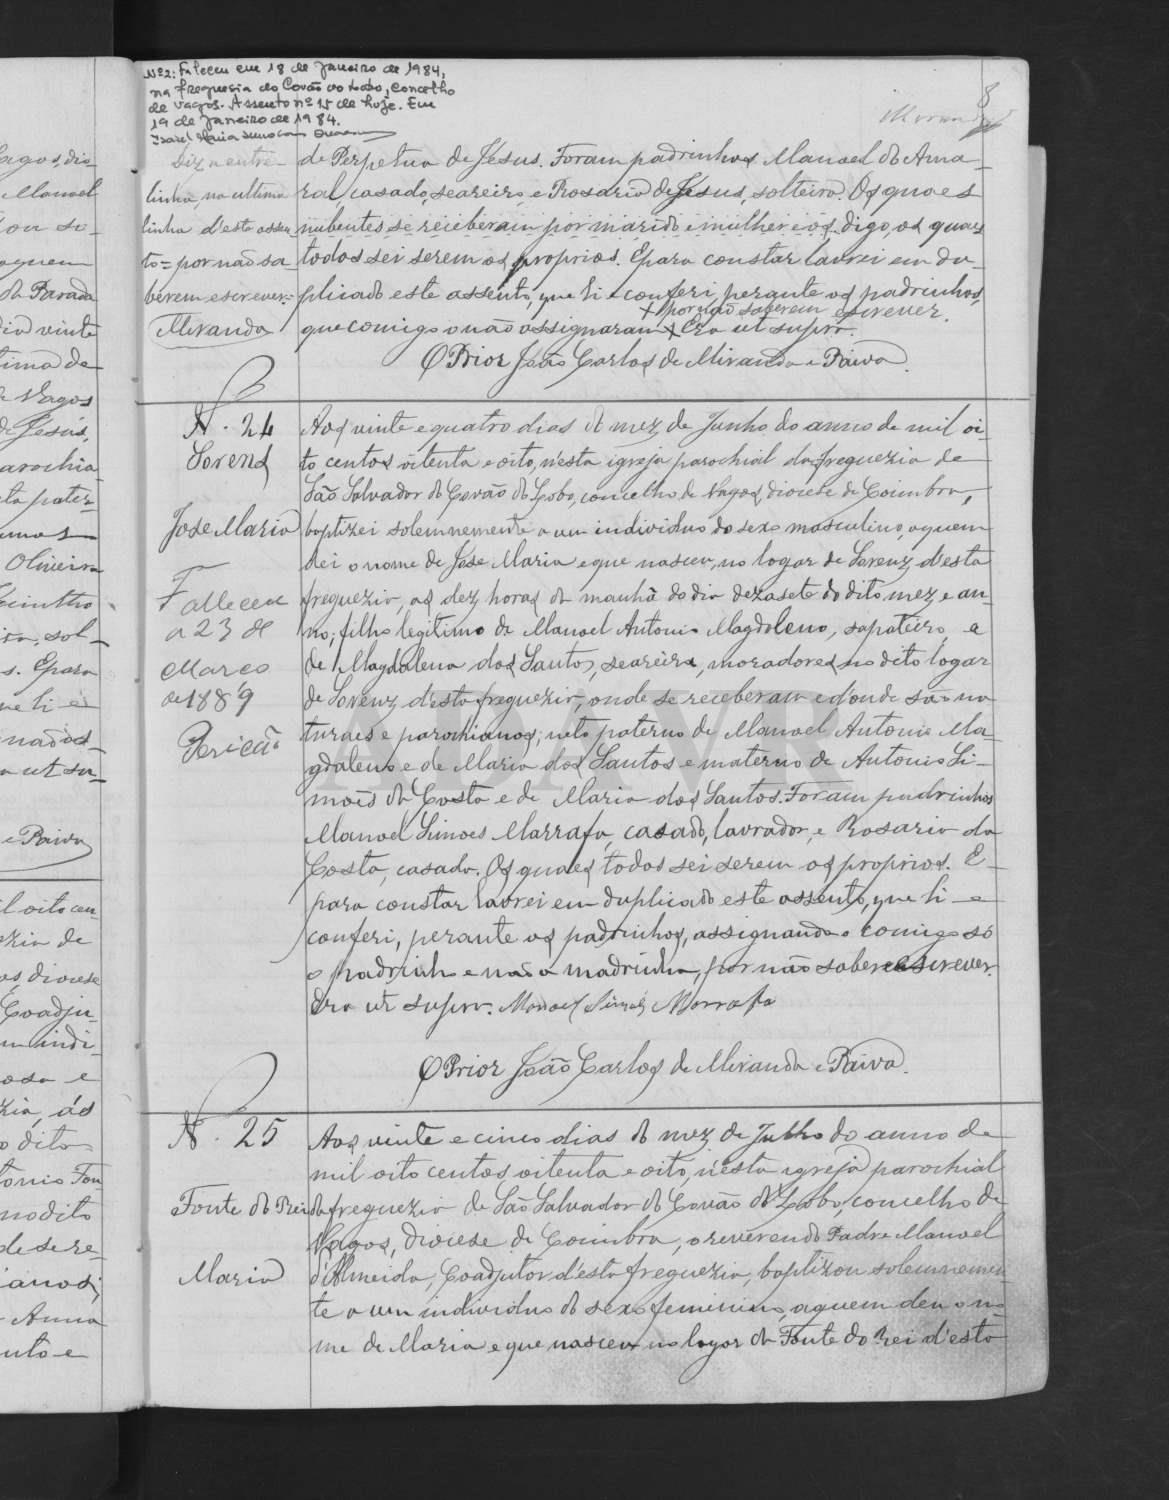 Nº 2: Faleceu em 18 de Janeiro de 1984,
na freguesia do Covão do Lobo, concelho
de Vagos. Assento nº 15 de hoje. Em
19 de Janeiro de 1984.
8
Diz a entre-
linha, na ultima
linha d'este assen-
to = por não sa-
berem escrever =
Miranda
de Perpetua de Jesus. Foram padrinhos Manoel do Ama-
ral, casado, seareiro, e Rosaria de Jesus, solteira. Os quaes
nubentes se receberam por marido e mulher e os, digo, os quaes
todos sei serem os proprios. E para constar lavrei em du-
plicado este assento, que li e conferi, perante os padrinhos,
x por não saberem escrever.
que comigo o não assignaram x Era ut supra.
O Prior João Carlos de Miranda e Paiva.
N. 24
Lorenz
José Maria
Falleceu
a 23 de
Março
de 1889
Aos vinte e quatro dias do mez de Junho do anno de mil oi-
to centos oitenta e oito, nesta igreja parochial da freguezia de
São Salvador do Covão do Lobo, concelho de Vagos, diocese de Coimbra,
baptizei solemnemente a um individuo do sexo masculino, a quem
dei o nome de José Maria e que nasceu, no logar de Lorenz d'esta
freguezia, as dez horas da manhã do dia dezasete do dito mez e an-
no; filho legitimo de Manoel Antonio Magdaleno, sapateiro, e
de Magdalena dos Santos, seareira, moradores no dito logar
de Lorenz d'esta freguezia, onde se receberam e d'onde são na-
turaes e parochianos; neto paterno de Manoel Antonio Ma-
gdaleno e de Maria dos Santos e materno de Antonio Si-
mões da Costa e de Maria dos Santos. Foram padrinhos
Manoel Simoes Marrafa, casado, lavrador, e Rosaria da
Costa, casada. Os quaes todos sei serem os proprios. E
para constar lavrei em duplicado este assento, que li e
conferi, perante os padrinhos, assignando comigo só
o padrinho e não a madrinha, por não saber escrever.
Era ut supra. Manoel Simoes Marrafa
O Prior João Carlos de Miranda e Paiva.
N. 25
Fonte do Rei
Maria
Aos vinte e cinco dias do mez de Julho do anno de
mil oito centos oitenta e oito, n'esta igreja parochial
da freguezia de São Salvador do Covão do Lobo, concelho de
Vagos, diocese de Coimbra, o reverendo Padre Manoel
d'Almeida, Coadjutor d'esta freguezia, baptizou solemnemen-
te a um individuo do sexo feminino, a quem deu o no-
me de Maria e que nasceu no logar da Fonte do Rei d'esta